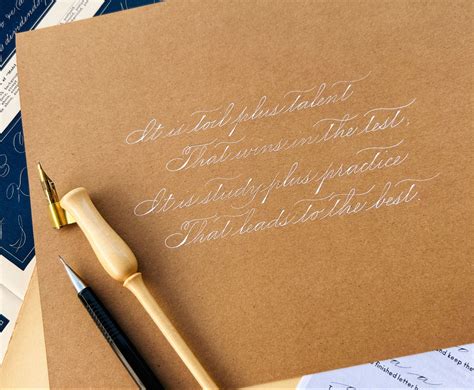 It is toil plus talent
That wins in the test,
It is study plus practice
That leads to the best.
finished letter b